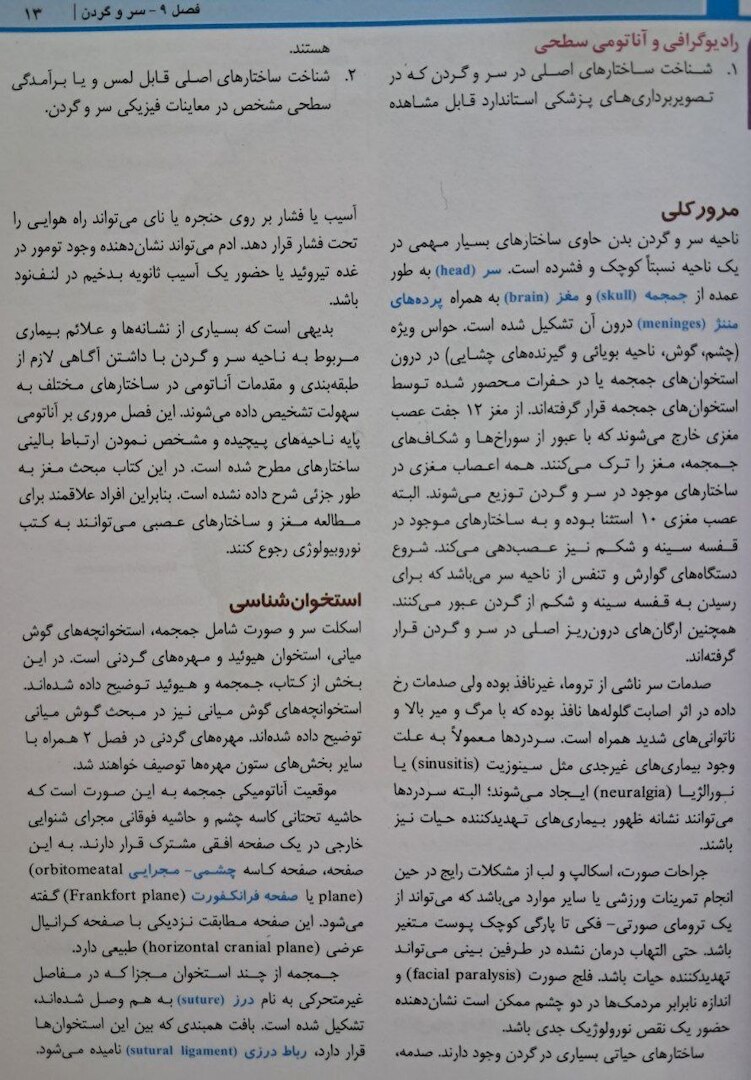 فصل ۹ - سر و گردن | ۱۳
رادیوگرافی و آناتومی سطحی
۱. شناخت ساختارهای اصلی در سر و گردن که در
تصویربرداری‌های پزشکی استاندارد قابل مشاهده
هستند.
۲. شناخت ساختارهای اصلی قابل لمس و یا برآمدگی
سطحی مشخص در معاینات فیزیکی سر و گردن.
مرور کلی
ناحیه سر و گردن بدن حاوی ساختارهای بسیار مهمی در
یک ناحیه نسبتاً کوچک و فشرده است. سر (head) به طور
عمده از جمجمه (skull) و مغز (brain) به همراه پرده‌های
مننژ (meninges) درون آن تشکیل شده است. حواس ویژه
(چشم، گوش، ناحیه بویائی و گیرنده‌های چشایی) در درون
استخوان‌های جمجمه یا در حفرات محصور شده توسط
استخوان‌های جمجمه قرار گرفته‌اند. از مغز ۱۲ جفت عصب
مغزی خارج می‌شوند که با عبور از سوراخ‌ها و شکاف‌های
جمجمه، مغز را ترک می‌کنند. همه اعصاب مغزی در
ساختارهای موجود در سر و گردن توزیع می‌شوند. البته
عصب مغزی ۱۰ استثنا بوده و به ساختارهای موجود در
قفسه سینه و شکم نیز عصب‌دهی می‌کند. شروع
دستگاه‌های گوارش و تنفس از ناحیه سر می‌باشد که برای
رسیدن به قفسه سینه و شکم از گردن عبور می‌کنند.
همچنین ارگان‌های درون‌ریز اصلی در سر و گردن قرار
گرفته‌اند.
صدمات سر ناشی از تروما، غیرنافذ بوده ولی صدمات رخ
داده در اثر اصابت گلوله‌ها نافذ بوده که با مرگ و میر بالا و
ناتوانی‌های شدید همراه است. سردردها معمولاً به علت
وجود بیماری‌های غیرجدی مثل سینوزیت (sinusitis) یا
نورالژیا (neuralgia) ایجاد می‌شوند؛ البته سردردها
می‌توانند نشانه ظهور بیماری‌های تهدیدکننده حیات نیز
باشند.
جراحات صورت، اسکالپ و لب از مشکلات رایج در حین
انجام تمرینات ورزشی یا سایر موارد می‌باشد که می‌تواند از
یک ترومای صورتی- فکی تا پارگی کوچک پوست متغیر
باشد. حتی التهاب درمان نشده در طرفین بینی می‌تواند
تهدیدکننده حیات باشد. فلج صورت (facial paralysis) و
اندازه نابرابر مردمک‌ها در دو چشم ممکن است نشان‌دهنده
حضور یک نقص نورولوژیک جدی باشد.
ساختارهای حیاتی بسیاری در گردن وجود دارند. صدمه،
آسیب یا فشار بر روی حنجره یا نای می‌تواند راه هوایی را
تحت فشار قرار دهد. ادم می‌تواند نشان‌دهنده وجود تومور در
غده تیروئید یا حضور یک آسیب ثانویه بدخیم در لنف‌نود
باشد.
بدیهی است که بسیاری از نشانه‌ها و علائم بیماری
مربوط به ناحیه سر و گردن با داشتن آگاهی لازم از
طبقه‌بندی و مقدمات آناتومی در ساختارهای مختلف به
سهولت تشخیص داده می‌شوند. این فصل مروری بر آناتومی
پایه ناحیه‌های پیچیده و مشخص نمودن ارتباط بالینی
ساختارهای مطرح شده است. در این کتاب مبحث مغز به
طور جزئی شرح داده نشده است. بنابراین افراد علاقمند برای
مطالعه مغز و ساختارهای عصبی می‌توانند به کتب
نوروبیولوژی رجوع کنند.
استخوان‌شناسی
اسکلت سر و صورت شامل جمجمه، استخوانچه‌های گوش
میانی، استخوان هیوئید و مهره‌های گردنی است. در این
بخش از کتاب، جمجمه و هیوئید توضیح داده شده‌اند.
استخوانچه‌های گوش میانی نیز در مبحث گوش میانی
توضیح داده شده‌اند. مهره‌های گردنی در فصل ۲ همراه با
سایر بخش‌های ستون مهره‌ها توصیف خواهند شد.
موقعیت آناتومیکی جمجمه به این صورت است که
حاشیه تحتانی کاسه چشم و حاشیه فوقانی مجرای شنوایی
خارجی در یک صفحه افقی مشترک قرار دارند. به این
صفحه، صفحه کاسه چشمی- مجرایی (orbitomeatal
plane) یا صفحه فرانکفورت (Frankfort plane) گفته
می‌شود. این صفحه مطابقت نزدیکی با صفحه کرانیال
عرضی (horizontal cranial plane) طبیعی دارد.
جمجمه از چند استخوان مجزا که در مفاصل
غیرمتحرکی به نام درز (suture) به هم وصل شده‌اند،
تشکیل شده است. بافت همبندی که بین این استخوان‌ها
قرار دارد، رباط درزی (sutural ligament) نامیده می‌شود.